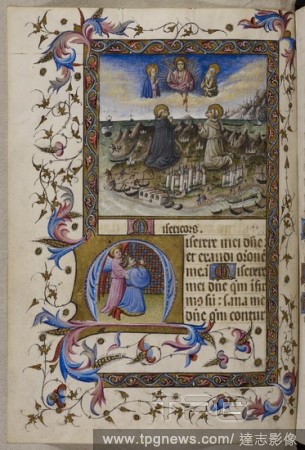 Misericors.
Miserere mei dñe
et exaudi oronē
meā Miserere
mei dñe qm̄ īfir
mus sū : sana me
dñe qm̄ contur
www.tpgnews.com/ 達志影像